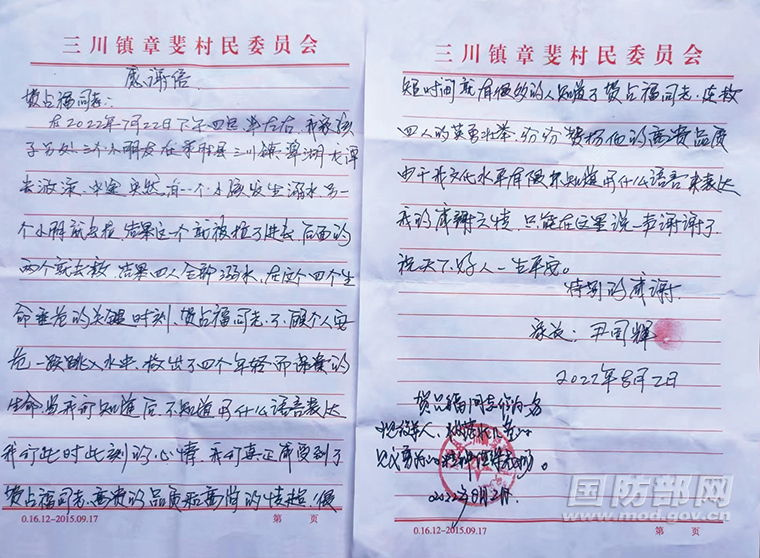 三川镇章斐村民委员会
感谢信
贺占福同志:
在2022年7月22日下午四点半左右,我家孩
子另外三个小朋友在平时县三川镇翠湖龙潭
去游泳,中途突然有一个小孩发生溺水另一
个小朋就去拉,结果这个就被拉了进去,后面的
两个就去救,结果四人全部溺水,在这个四个生
命垂危的关键时刻,贺占福同志不顾个人安
危一跃跳入水中,救出了四个年轻而保贵的
生命当我们知道后,不知道用什么语言表达
我们此时此刻的心情,我们真正感受到了
贺占福同志,高贵的品质和高尚的情超,很
0.16.12-2015.09.17
第 页
三川镇章斐村民委员会
短时间就有很多的人知道了贺占福同志,连救
四人的英勇壮举,纷纷赞扬他的高贵品质
由于我文化水平有限不知道用什么语言来表达
我的感谢之情,只能在这里说一声谢谢了
祝天下好人一生平安。
特别的感谢
家长:尹司辉
2022年8月2日
贺占福同志
2022年8月2日
0.16.12-2015.09.17
第 页
国防部网
www.mod.gov.cn